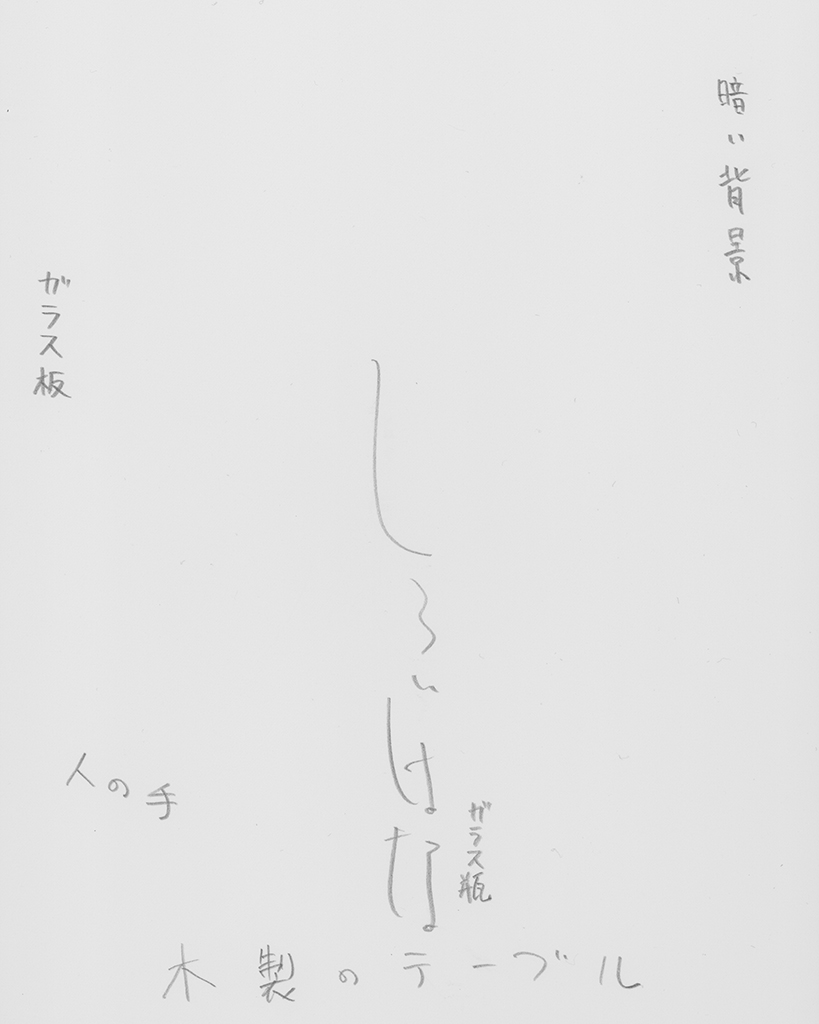 暗い背景
ガラス板
しろいはな
人の手
ガラス瓶
木製のテーブル